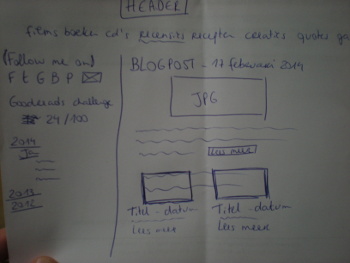 HEADER
films boeken cd's recensies recepten creaties quotes
(Follow me on)
F t G B P
Goodreads challenge
24/100
2014
2013
2012
BLOGPOST - 17 februari 2014
JPG
Lees meer
Titel - datum
Lees meer
Titel - datum
Lees meer